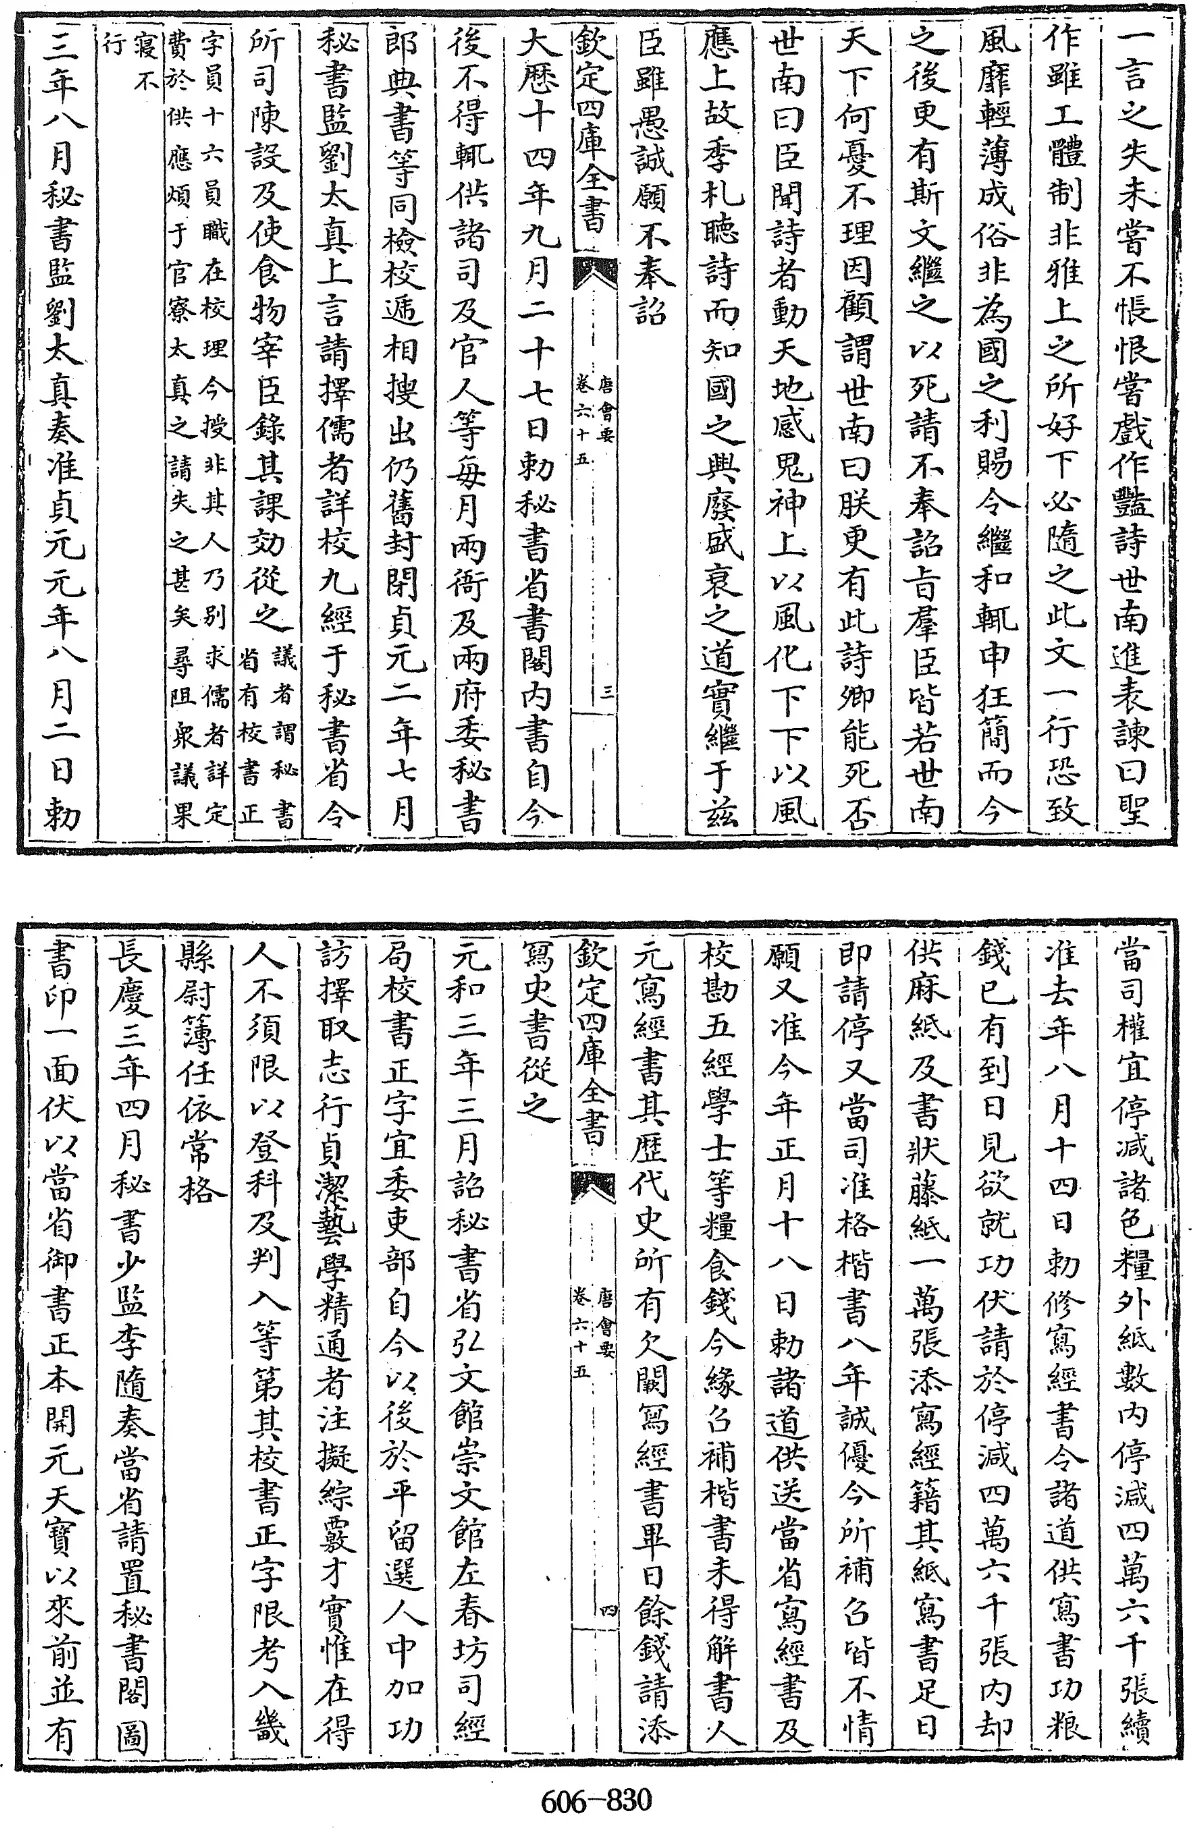 一言之失未嘗不悵恨嘗戲作豔詩世南進表諫曰聖
作雖工體制非雅上之所好下必隨之此文一行恐致
風靡輕薄成俗非為國之利賜令繼和輒申狂簡而今
之後更有斯文繼之以死請不奉詔旨羣臣皆若世南
天下何憂不理因顧謂世南曰朕更有此詩卿能死否
世南曰臣聞詩者動天地感鬼神上以風化下下以風
應上故季札聽詩而知國之興廢盛衰之道實繼于兹
臣雖愚誠願不奉詔
欽定四庫全書
唐會要
卷六十五
三
大歴十四年九月二十七日勅秘書省書閣内書自今
後不得輒供諸司及官人等每月兩衙及兩府委秘書
郎典書等同檢校遞相搜出仍舊封閉貞元二年七月
秘書監劉太真上言請擇儒者詳校九經于秘書省令
所司陳設及使食物宰臣錄其課効從之議者謂秘書
省有校書正
字員十六員職在校理今授非其人乃别求儒者詳定
費於供應煩于官寮太真之請失之甚矣尋阻衆議果
寢不
行
三年八月秘書監劉太真奏准貞元元年八月二日勅
當司權宜停減諸色糧外紙數内停減四萬六千張續
准去年八月十四日勅修寫經書令諸道供寫書功粮
錢已有到日見欲就功伏請於停減四萬六千張内却
供麻紙及書狀藤紙一萬張添寫經籍其紙寫書足日
即請停又當司准格楷書八年誠優今所補召皆不情
願又准今年正月十八日勅諸道供送當省寫經書及
校勘五經學士等糧食錢今緣召補楷書未得解書人
元寫經書其歷代史所有欠闕冩經書畢日餘錢請添
欽定四庫全書
唐會要
卷六十五
四
冩史書從之
元和三年三月詔秘書省弘文館崇文館左春坊司經
局校書正字宜委吏部自今以後於平留選人中加功
訪擇取志行貞潔藝學精通者注擬綜覈才實惟在得
人不須限以登科及判入等第其校書正字限考入畿
縣尉簿任依常格
長慶三年四月秘書少監李隨奏當省請置秘書閣圖
書印一面伏以當省御書正本開元天寶以來前並有
606-830